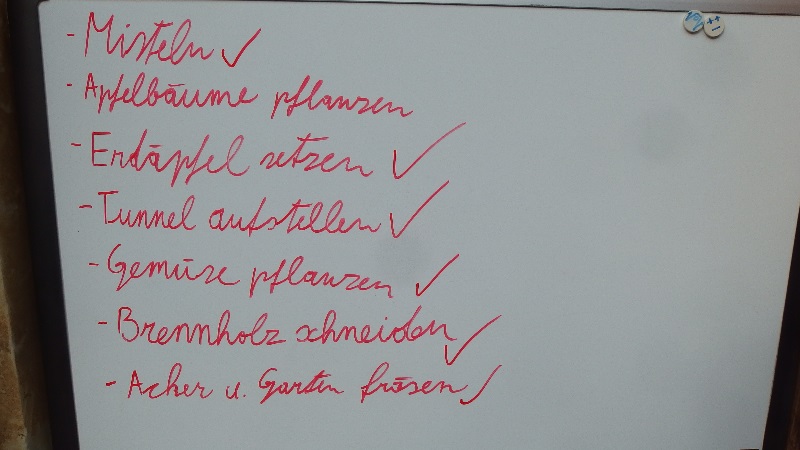 - Misteln ✓
- Apfelbäume pflanzen
- Erdäpfel setzen ✓
- Tunnel aufstellen ✓
- Gemüse pflanzen ✓
- Brennholz schneiden ✓
- Acker u. Garten fräsen ✓